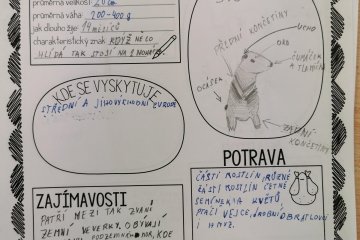 průměrná velikost: 20cm
průměrná váha: 200-400g
jak dlouho žije: 14 měsíců
charakteristický znak: KDYŽ NĚCO
HLÍDÁ TAK STOJÍ NA 2 NOHÁCH
PŘEDNÍ KONČETINY
UCHO
OKO
ČUMÁČEK
A TLAMIČKA
OCÁSEK
ZADNÍ
KONČETINY
KDE SE VYSKYTUJE
STŘEDNÍ A JIHOVÝCHODNÍ EVROPĚ
ZAJÍMAVOSTI
PATŘÍ MEZI TAK ZVANÍ
ZEMNÍ VEVERKY. OBÝVAJÍ
KDE
POTRAVA
ČÁSTI ROSTLIN, RŮZNÉ
ČÁSTI ROSTLIN ČETNĚ
SEMÍNEK A KVĚTŮ
PTAČÍ VEJCE, DROBNÍ OBRATLOVCI
I HMYZ.